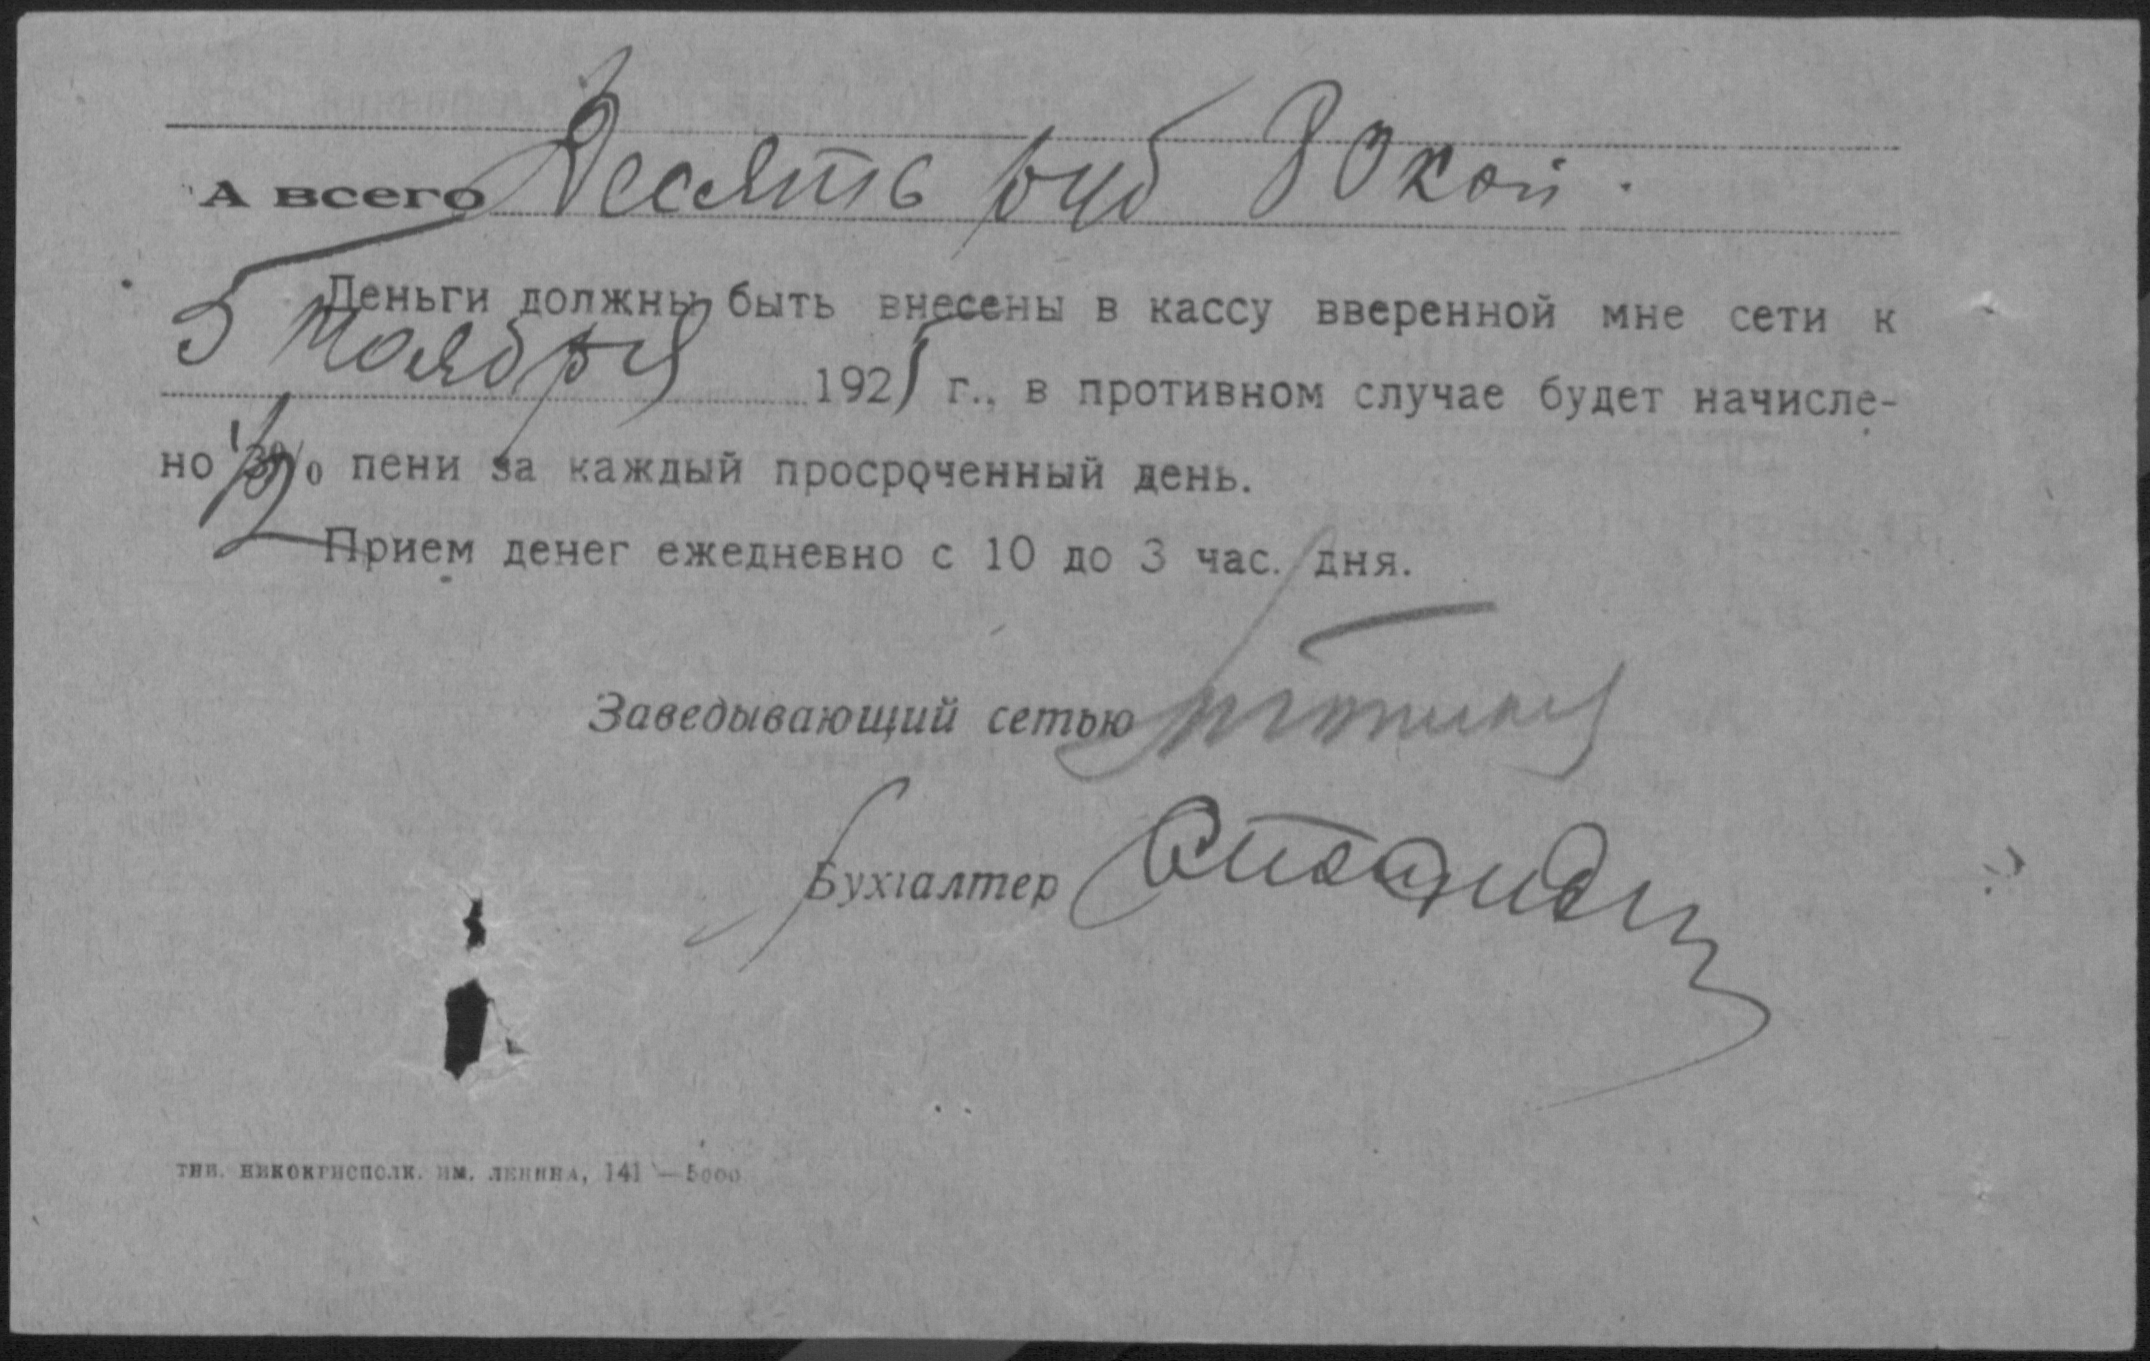 А всего Десять руб 30 коп.
Деньги должны быть внесены в кассу вверенной мне сети к
5 Ноября 1925 г., в противном случае будет начисле-
но 1/2 % пени за каждый просроченный день.
Прием денег ежедневно с 10 до 3 час. дня.
Заведывающий сетью
Бухгалтер
тип. никокрисполк. им. ленина, 141 — 5000